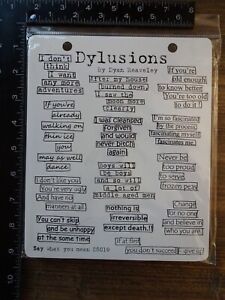 Dylusions
by Dyan Reaveley
I don't
think
I want
any more
adventures
If you're
already
walking on
thin ice
you
may as well
dance
I don't like you
You're very ugly
And have no
manners at all
You can't skip
and be unhappy
at the same time
Say what you mean
After my house
burned down
I saw the
moon more
clearly
I was cleansed
Forgiven
and would
never bitch
again
Boys will
be boys
and so will
a lot of
middle aged men
nothing is
irreversible
except death!!
If at first
you don't succeed
If you're
old enough
to know better
You're too old
to do it!
I'm so fascinating
by the process
fascinating myself
I'm so fascinated
Never be
too proud
to serve
frozen peas
Change
for no one
and believe in
who you are.
give up